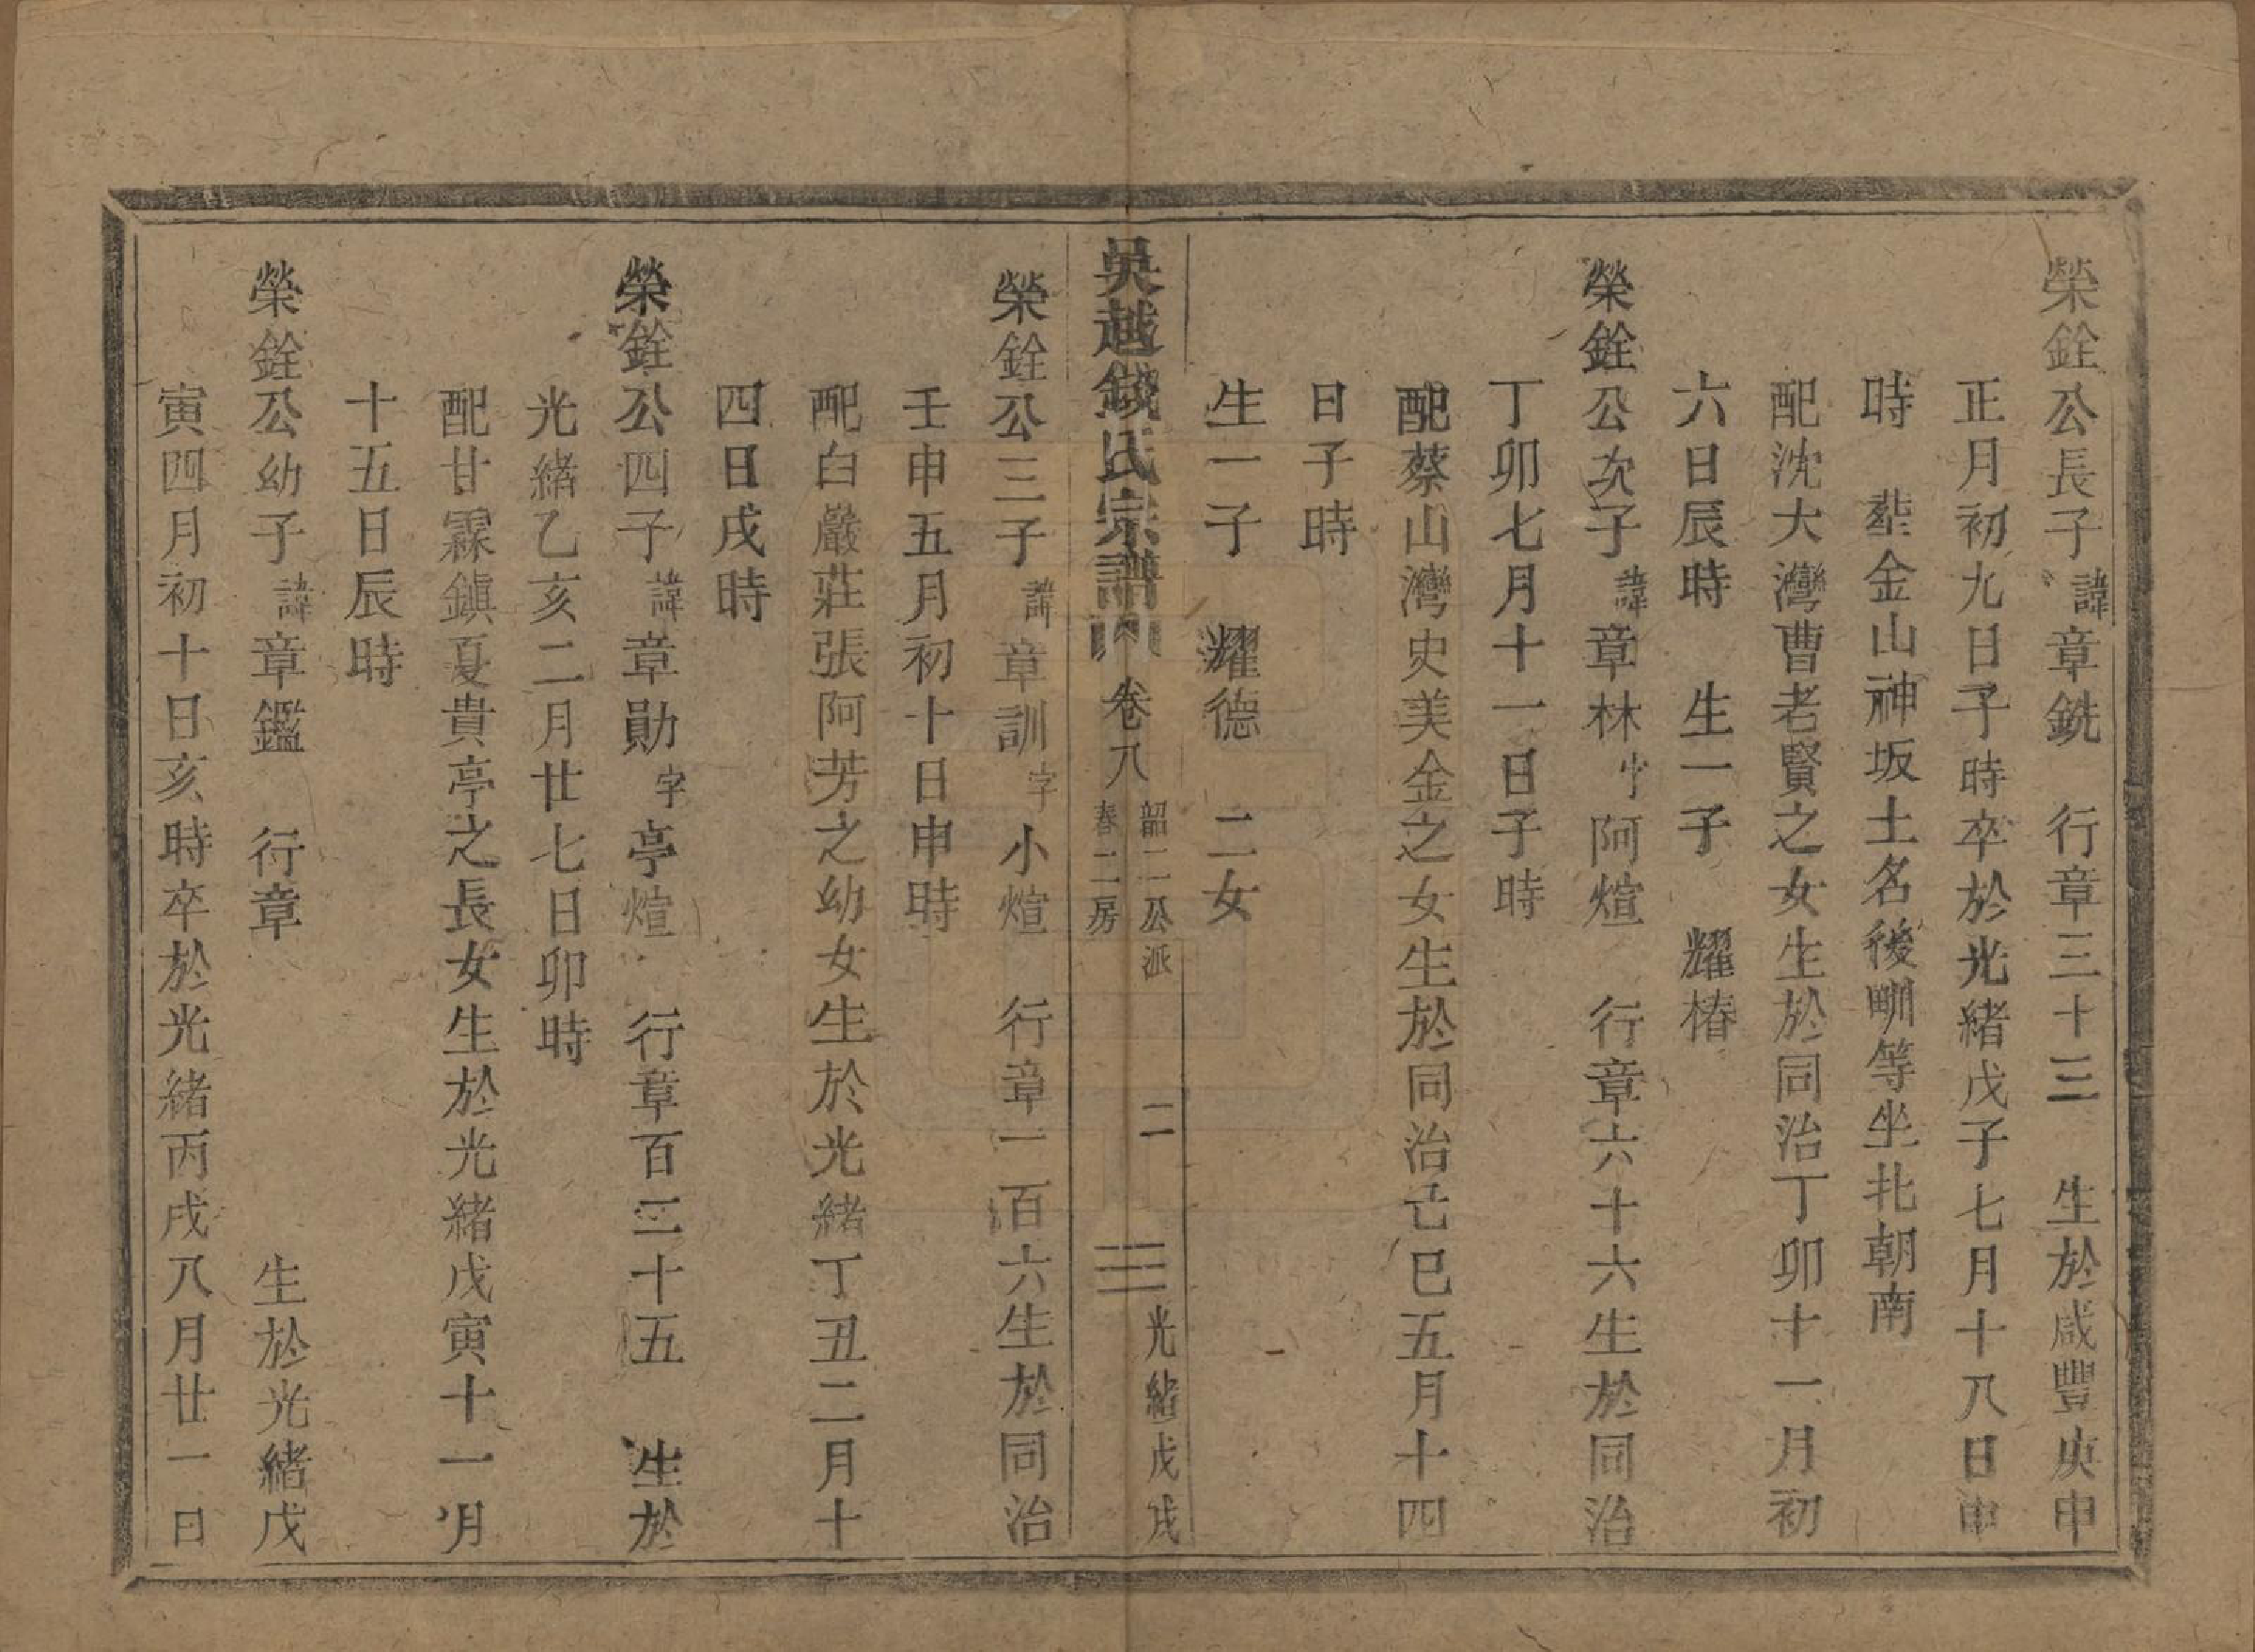 榮銓公長子諱章銑　行章三十三　生於咸豐庚申
正月初九日子時卒於光緒戊子七月十八日申
時　塟金山神坂土名後堋等坐北朝南
配沈大灣曹老賢之女生於同治丁卯十一月初
六日辰時　生一子　耀椿
榮銓公次子諱章林小字阿煊　行章六十六生於同治
丁卯七月十一日子時
配蔡山灣史美金之女生於同治己巳五月十四
日子時
生一子　耀德　二女
吳越錢氏宗譜　卷八　韶二公派　春二房　二　光緒戊戌
榮銓公三子諱章訓字小煊　行章一百六生於同治
壬申五月初十日申時
配白巖莊張阿芳之幼女生於光緒丁丑二月十
四日戌時
榮銓公四子諱章勛字亭煊　行章百二十五　生於
光緒乙亥二月廿七日卯時
配甘霖鎮夏貴亭之長女生於光緒戊寅十一月
十五日辰時
榮銓公幼子諱章鑑　行章　生於光緒戊
寅四月初十日亥時卒於光緒丙戌八月廿一日